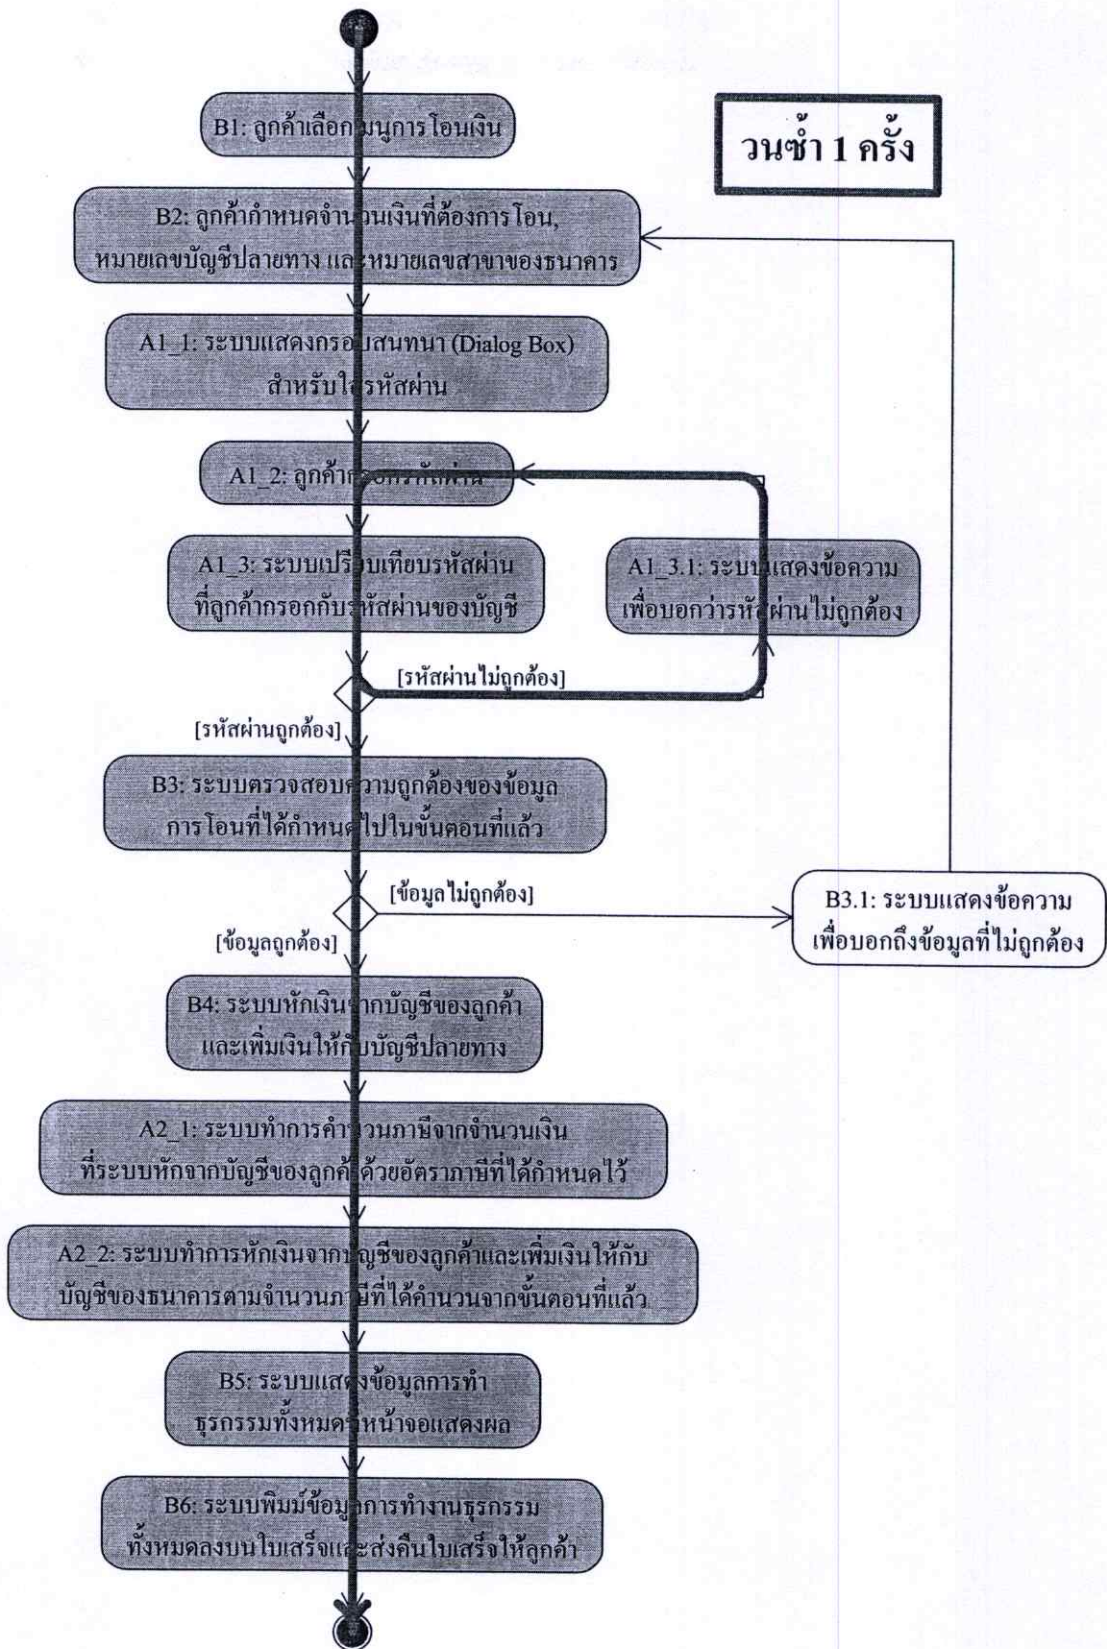 B1: ลูกค้าเลือกเมนูการโอนเงิน
วนซ้ำ 1 ครั้ง
B2: ลูกค้ากำหนดจำนวนเงินที่ต้องการโอน,
หมายเลขบัญชีปลายทาง และหมายเลขสาขาของธนาคาร
A1_1: ระบบแสดงกรอบสนทนา (Dialog Box)
สำหรับใส่รหัสผ่าน
A1_2: ลูกค้ากรอกรหัสผ่าน
A1_3: ระบบเปรียบเทียบรหัสผ่าน
ที่ลูกค้ากรอกกับรหัสผ่านของบัญชี
A1_3.1: ระบบแสดงข้อความ
เพื่อบอกว่ารหัสผ่านไม่ถูกต้อง
[รหัสผ่านไม่ถูกต้อง]
[รหัสผ่านถูกต้อง]
B3: ระบบตรวจสอบความถูกต้องของข้อมูล
การโอนที่ได้กำหนดไปในขั้นตอนที่แล้ว
[ข้อมูลไม่ถูกต้อง]
[ข้อมูลถูกต้อง]
B3.1: ระบบแสดงข้อความ
เพื่อบอกถึงข้อมูลที่ไม่ถูกต้อง
B4: ระบบหักเงินจากบัญชีของลูกค้า
และเพิ่มเงินให้กับบัญชีปลายทาง
A2_1: ระบบทำการคำนวนภาษีจากจำนวนเงิน
ที่ระบบหักจากบัญชีของลูกค้าด้วยอัตราภาษีที่ได้กำหนดไว้
A2_2: ระบบทำการหักเงินจากบัญชีของลูกค้าและเพิ่มเงินให้กับ
บัญชีของธนาคารตามจำนวนภาษีที่ได้คำนวนจากขั้นตอนที่แล้ว
B5: ระบบแสดงข้อมูลการทำ
ธุรกรรมทั้งหมดที่หน้าจอแสดงผล
B6: ระบบพิมม์ข้อมูลการทำงานธุรกรรม
ทั้งหมดลงบนใบเสร็จและส่งคืนใบเสร็จให้ลูกค้า